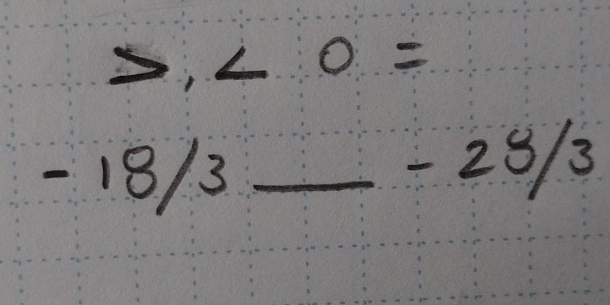 >, < 0 =
- 18/3 ___ - 28/3